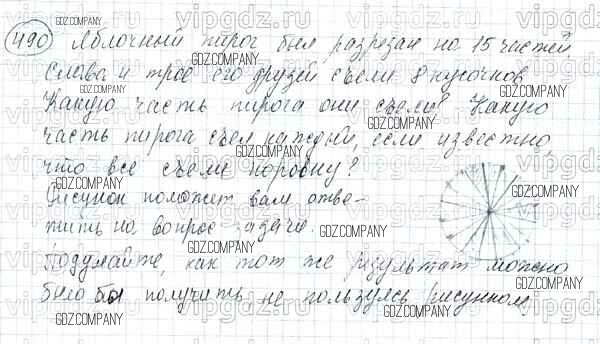 490 Яблочный пирог был разрезан на 15 частей
Слава и трое его друзей съели 8 кусочков
Какую часть пирога они съели? Какую
часть пирога съел каждый, если известно,
что все съели поровну?
Рисунок поможет вам отве-
тить на вопрос задачи.
Подумайте, как тот же результат можно
было бы получить не пользуясь рисунком.
GDZ.COMPANY
vipgdz.ru